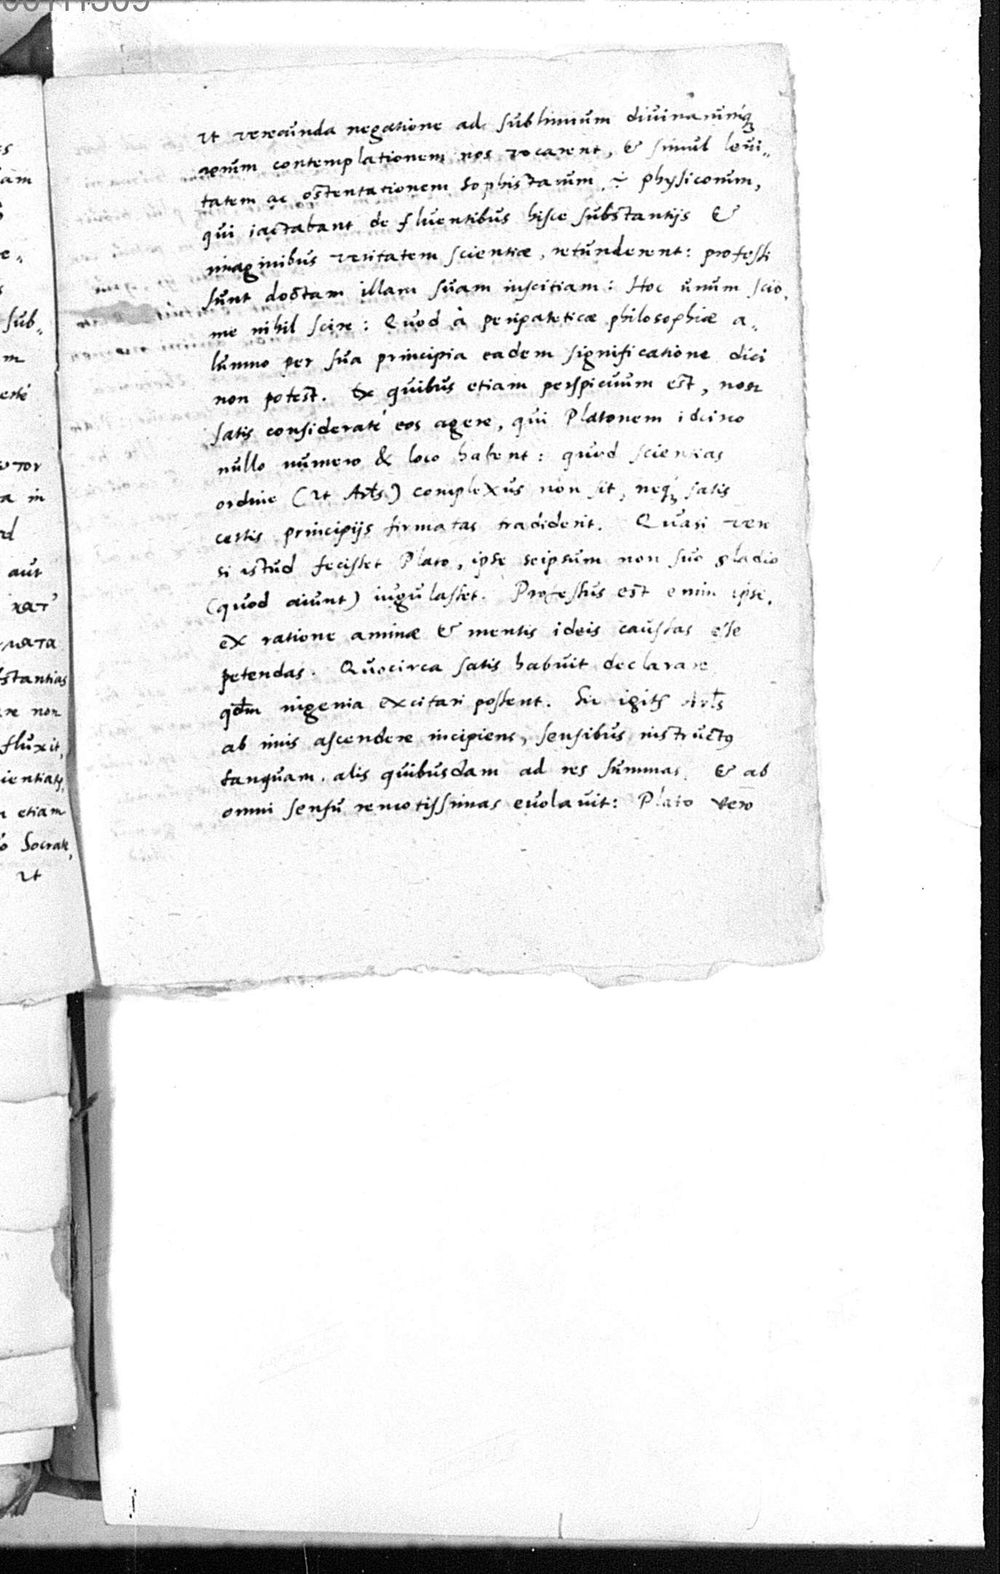 s
am
e„
s
sub„
m
certè
ντον
a in
d
aut
κατ'
ματα
stantias
re non
fluxit,
ientias,
n etiam
ò Socrate,
ut
ut verecunda negatione ad sublimium diuinarumq́;
rerum contemplationem nos vocarent, & simul leui„
tatem ac ostentationem Sophistarum, ÷ physicorum,
qui iactabant de fluentibus hisce substantijs &
imaginibus veritatem scientiæ, retunderent: professi
sunt doctam illam suam inscitiam: Hoc unum scio,
me nihil scire: Quod à peripateticæ philosophiæ a„
lumno per sua principia eadem significatione dici
non potest. Ex quibus etiam perspicuum est, non
satis consideratè eos agere, qui Platonem idcirco
nullo numero & loco habent: quod scientias
ordine (ut Arls) complexus non sit, neq; satis
certis principijs firmatas tradiderit. Quasi vero
si istud fecisset Plato, ipse seipsum non suo gladio
(quod aiunt) iugulasset. Professus est enim ipse,
ex ratione animæ & mentis ideis caussas esse
petendas. Quocirca satis habuit declarare
qđm ingenia excitari possent. Sic igitr Arls
ab imis ascendere incipiens, sensibus instructꝯ
tanquam alis quibusdam ad res summas & ab
omni sensu remotissimas euolauit: Plato vero